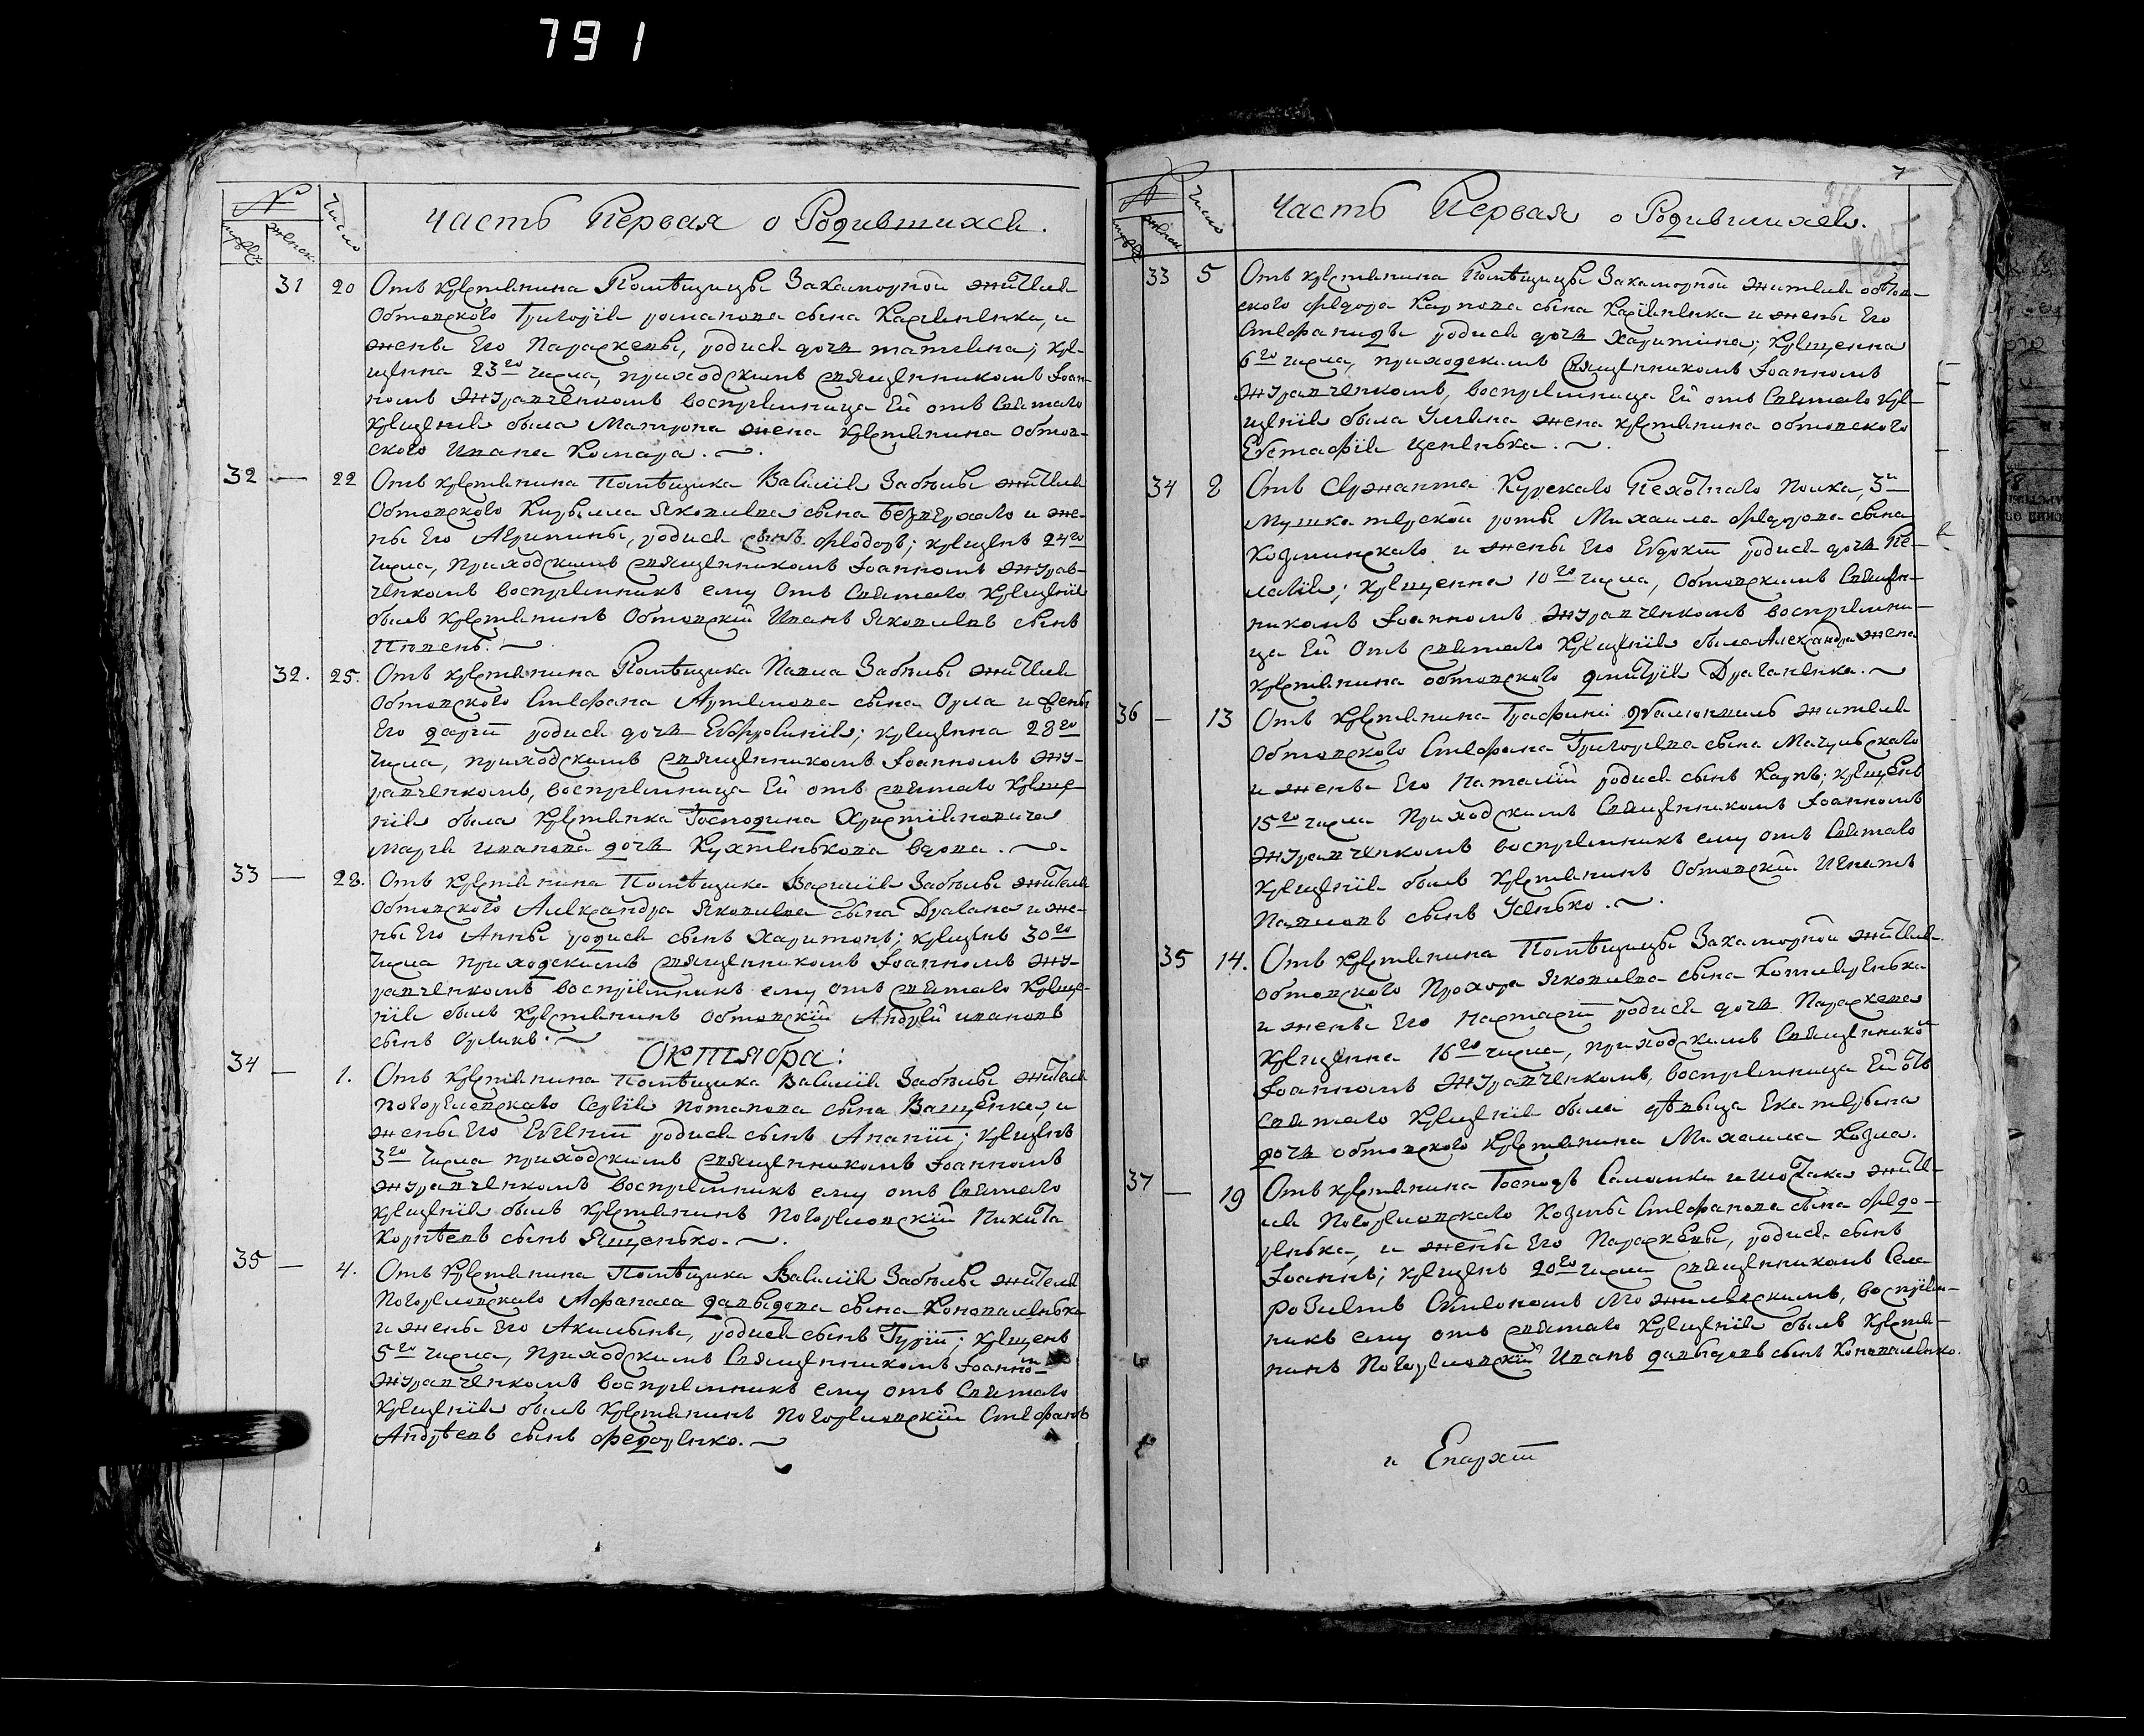 791
№
мужеск
женск.
Число
Часть Первая о Родившихся.
31 20 Отъ крестянина Помѣщицы Закаморной жителя
Обтовского Григорія романова сына Касяненка, и
жены Его Параскевы, родися дочь татіяна; кре-
щенна 23го числа, приходскимъ священникомъ Іоан-
номъ Журавченкомъ воспріемница Ей отъ Святаго
крещенія была Матрона жена крестянина обтов-
ского Ивана Комара.
32 — 22 Отъ крестянина Помѣщика Василія Забѣлы жителя
Обтовского Кирылла Яковлева сына Безперхаго и же-
ны Его Агрипины, родися сынъ Феодоръ; крещенъ 24го
числа, приходскимъ священникомъ Іоанномъ Журав-
ченкомъ воспріемникъ ему Отъ Святаго Крещенія
былъ крестянинъ Обтовскій Иванъ Яковлевъ сынъ

32. 25. Отъ крестянина Помѣщика Павла Забѣлы жителя
Обтовского Стефана Артемова сына Орла и жены
Его даріи родися дочь Евфросинія; крещенна 28го
числа, приходскимъ священникомъ Іоанномъ Жу-
равченкомъ, воспріемница Ей отъ святаго Креще-
нія была крестянка Господина Христіановича
марія иванова дочь вдова.
33 — 28. Отъ крестянина Помѣщика Василія Забѣлы жителя
Обтовского Александра Яковлева сына Драгана и же-
ны Его Анны родися сынъ Харитонъ; крещенъ 30го
числа приходскимъ священникомъ Іоанномъ Жу-
равченкомъ воспріемникъ ему отъ святаго Креще-
нія былъ крестянинъ обтовскій Андрей ивановъ
сынъ Орликъ.
Октября:
34 — 1. Отъ крестянина Помѣщика Василія Забѣлы жителя
Погорѣловскаго Сергія потапова сына Ващенка, и
жены Его Евгеніи родися сынъ Ананій; крещенъ
3го числа приходскимъ священникомъ Іоанномъ
Журавченкомъ воспріемникъ ему отъ Святаго
крещенія былъ крестянинъ Погорѣловскій Никита
Корнѣевъ сынъ Ященько.
35 — 4. Отъ Крестянина Помѣщика Василія Забѣлы жителя
Погорѣловскаго Афанаса давыдова сына Коноваленька
и жены Его Акилины, родися сынъ Гурій; крещенъ
5го числа, приходскимъ Священникомъ Іоанномъ
Журавченкомъ воспріемникъ ему отъ Святаго
Крещенія былъ крестянинъ Погорѣловскій Стефанъ
Андрѣевъ сынъ Федоренко.
7
№
мужеск
женск
Число
Часть Первая о Родившихся.
33 5 Отъ крестянина Помѣщицы Закаморной жителя обтов-
ского Федора Карпова сына Касіяненка и жены Его
Стефаниды родися дочь Харитина; крещенна
6го числа, приходскимъ священникомъ Іоанномъ
Журавченкомъ, воспріемница Ей отъ Святаго кре-
щенія была Уляна жена крестянина обтовского
Евстафія
34 8 Отъ Сержанта Курскаго Пехотнаго Полка, 3й
Мушкатерской роты Михаила Федорова сына
Козминскаго и жены Его Евдокіи родися дочь Пе-
лагія; крещенна 10го числа, Обтовскимъ Священ-
никомъ Іоанномъ Журавченкомъ воспріемни-
ца Ей Отъ святаго Крещенія была Александра жена
крестянина обтовского дмитрія Драганенка.
36 — 13 Отъ Крестянина Графини жителя
Обтовского Стефана Григорева сына Мачульскаго
и жены Его Наталіи родися сынъ Карпъ; крещенъ
15го числа Приходскимъ Священникомъ Іоанномъ
Журавченкомъ воспріемникъ ему отъ Святаго
Крещенія былъ Крестянинъ Обтовскій Игнатъ
Павловъ сынъ Усенько.
35 14. Отъ крестянина Помѣщицы Закаморной жителя
обтовского Прохора Яковлева сына
и жены Его Настасіи родися дочь Параскева
Крещенна 16го числа, приходскимъ Священнико
Іоанномъ Журавченкомъ, воспріемница Ей отъ
Святаго Крещенія была дѣвица Екатерина
дочь обтовского крестянина Михаила Козла.
37 — 19 Отъ крестянина Господъ жите-
ля Погорѣловскаго Козмы Стефанова сына Федо-
ренька, и жены Его Параскевы, родися сынъ
Іоаннъ; крещенъ 20го числа священникомъ Села

никъ ему отъ святаго Крещенія былъ Крестя-
нинъ Погорѣловскій Иванъ давыдовъ сынъ Коноваленко.
и Епархіи